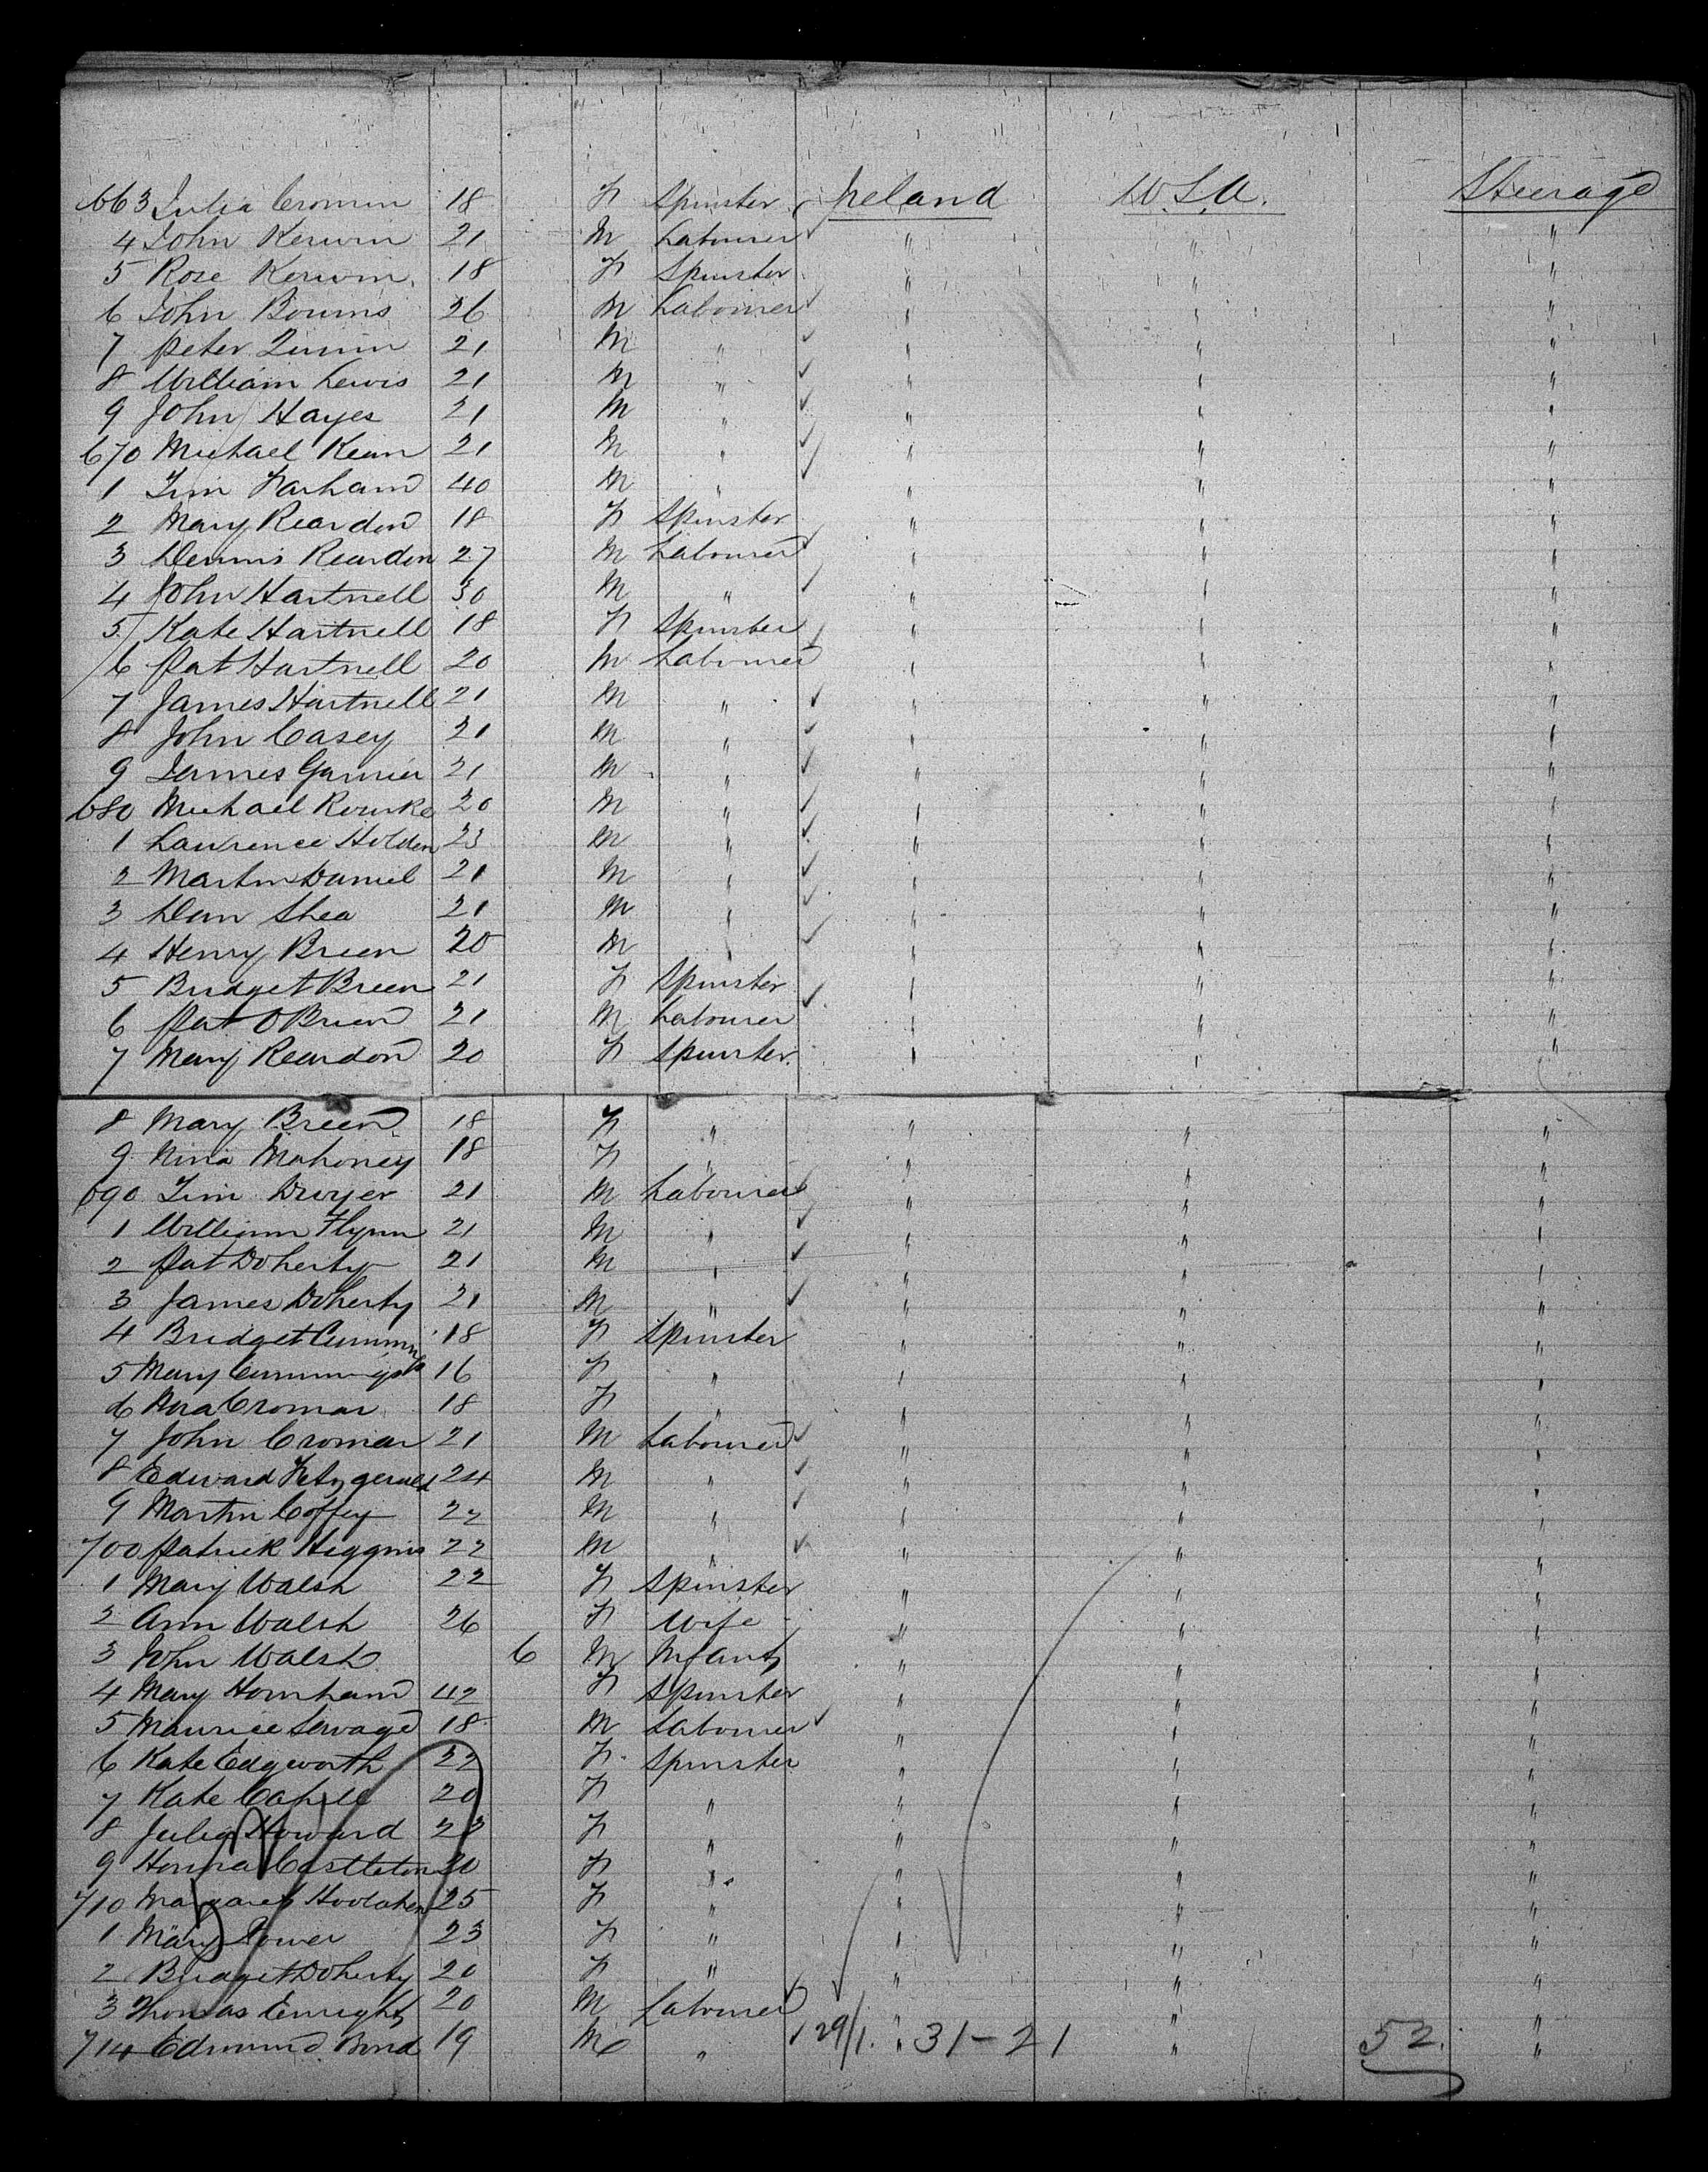 663 Julia Cronin 18 F Spinster Ireland U.S.A. Steerage
4 John Kerwin 21 M Labourer " " "
5 Rose Kerwin 18 F Spinster " " "
6 John Bowns 26 M Labourer " " "
7 Peter Quinn 21 M " " " "
8 William Lewis 21 M " " " "
9 John Hayes 21 M " " " "
670 Michael Kean 21 M " " " "
1 Tim 40 M " " " "
2 Mary Reardon 18 F Spinster " " "
3 Dennis Reardon 27 M Labourer " " "
4 John Hartnell 30 M " " " "
5 Kate Hartnell 18 F Spinster " " "
6 Pat Hartnell 20 M Labourer " " "
7 James Hartnell 21 M " " " "
8 John Casey 21 M " " " "
9 James 21 M " " " "
680 Michael Rourke 20 M " " " "
1 Lawrence Holden 23 M " " " "
2 Martin Daniel 21 M " " " "
3 Dan Shea 21 M " " " "
4 Henry Breen 20 M " " " "
5 Bridget Breen 21 F Spinster " " "
6 Pat OBrien 21 M Labourer " " "
7 Mary Reardon 20 F Spinster " " "
8 Mary Breen 18 F " " " "
9 Nina Mahoney 18 F " " " "
690 Tim Dwyer 21 M Labourer " " "
1 William Flynn 21 M " " " "
2 Pat Doherty 21 M " " " "
3 James Doherty 21 M " " " "
4 Bridget Cummings 18 F Spinster " " "
5 Mary Cummings 16 F " " " "
6 Cromar 18 F " " " "
7 John Cromar 21 M Labourer " " "
8 Edward Fitzgerald 24 M " " " "
9 Martin Coffey 22 M " " " "
700 Patrick Higgins 22 M " " " "
1 Mary Walsh 22 F Spinster " " "
2 Ann Walsh 26 F Wife " " "
3 John Walsh 6 M Infant " " "
4 Mary 42 F Spinster " " "
5 Maurice Savage 18 M Labourer " " "
6 Kate Edgworth 22 F Spinster " " "
7 Kate Cahill 20 F " " " "
8 Julia Howard 23 F " " " "
9 Honna Castleton 20 F " " " "
710 Margaret 25 F " " " "
1 Mary Power 23 F " " " "
2 Bridget Doherty 20 F " " " "
3 Thomas Enright 20 M Labourer " " "
714 Edmund Bond 19 M " 29/1. " 31-21 " 52. "